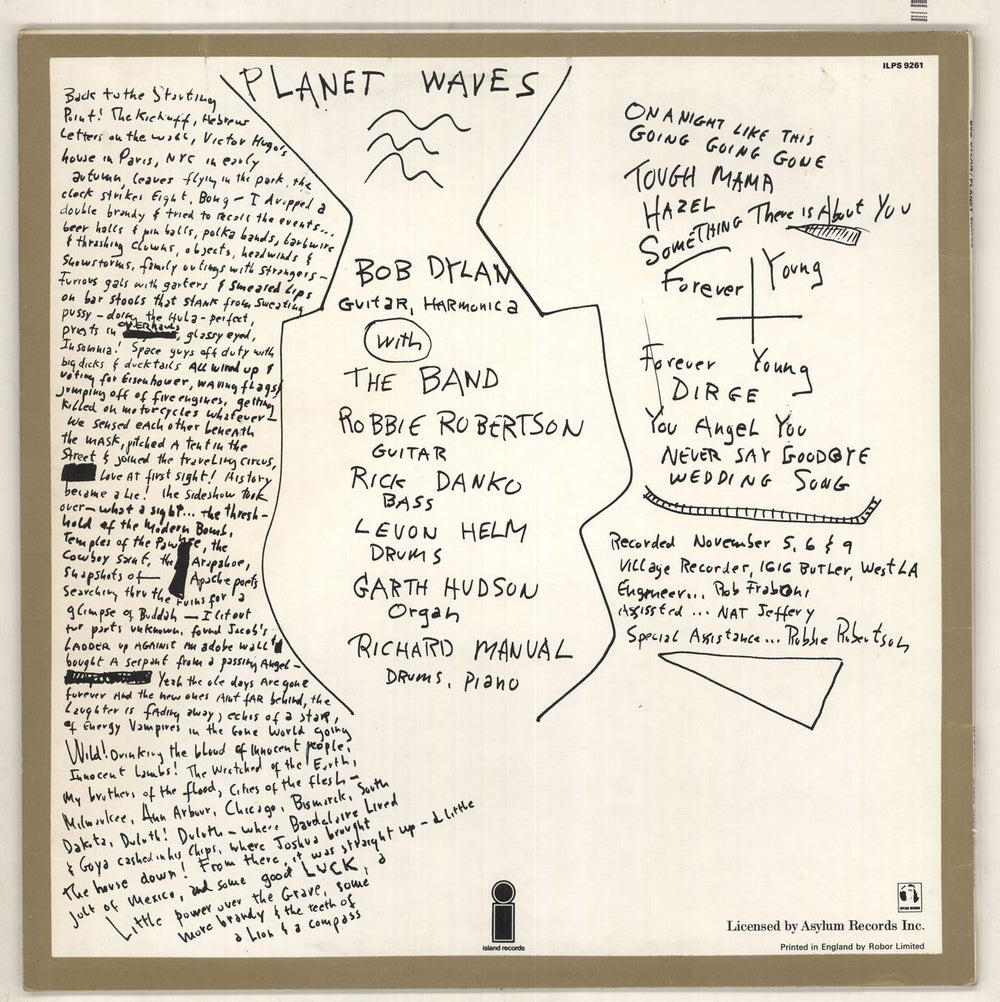 ILPS 9261
PLANET WAVES
Back to the Starting
Point! The Kickoff, Hebrew
Letters on the wall, Victor Hugo's
house in Paris, NYC in early
autumn, leaves flying in the park, the
clock strikes Eight, Bong – I dropped a
double brandy & tried to recall the events...
beer halls & pin balls, polka bands, barbwire
& thrashing clowns, objects, headwinds &
Snowstorms, family outings with strangers –
Furious gals with garters & smeared Lips
on bar stools that stank from sweating
pussy – doing the Hula – perfect,
priests in overhauls, glassy eyed,
Insomnia! Space guys off duty with
big dicks & ducktails All wired up &
voting for Eisenhower, waving flags &
jumping off of fire engines, getting
killed on motorcycles whatever –
We sensed each other beneath
the mask, pitched a tent in the
Street & joined the traveling circus,
Love at first sight! History
became a Lie! the sideshow took
over – what a sight... the thresh-
hold of the Modern Bomb,
Temples of the Pawnee, the
Cowboy Saint, the Arapahoe,
Snapshots of – Apache poets
Searching thru the ruins for a
glimpse of Buddah – I lit out
for parts unknown, found Jacob's
Ladder up against an adobe wall &
bought a serpent from a passing Angel –
Yeah the ole days Are gone
forever And the new ones Aint fAR behind, the
Laughter is fAding away, echos of a staR,
of Energy Vampires in the Gone World going
Wild! Drinking the blood of innocent people,
Innocent Lambs! The Wretched of the Earth,
My brothers of the flood, Cities of the flesh –
Milwaukee, Ann Arbour, Chicago, Bismarck, South
Dakota, Duluth! Duluth – where Baudelaire Lived
& Goya cashed in his Chips, where Joshua brought
the house down! From there, it was straight up – a little
jolt of Mexico, and some good LUCK, a
Little power over the Grave, some
more brandy & the teeth of
a Lion & a compass
BOB DYLAN
Guitar, Harmonica
with
THE BAND
ROBBIE ROBERTSON
GUITAR
RICK DANKO
BASS
LEVON HELM
DRUMS
GARTH HUDSON
Organ
RICHARD MANUAL
DRUMS, Piano
ON A NIGHT LIKE THIS
GOING GOING GONE
TOUGH MAMA
HAZEL
SOMETHING There is About You
Forever Young
Forever Young
DIRGE
You Angel You
NEVER SAY GOODBYE
WEDDING SONG
Recorded November 5, 6 & 9
Village Recorder, 1616 BUTLER, West LA
Engineer... Rob Fraboni
Assissted... NAT Jeffery
Special Assistance... Robbie Robertson
island records
ASYLUM RECORDS
Licensed by Asylum Records Inc.
Printed in England by Robor Limited